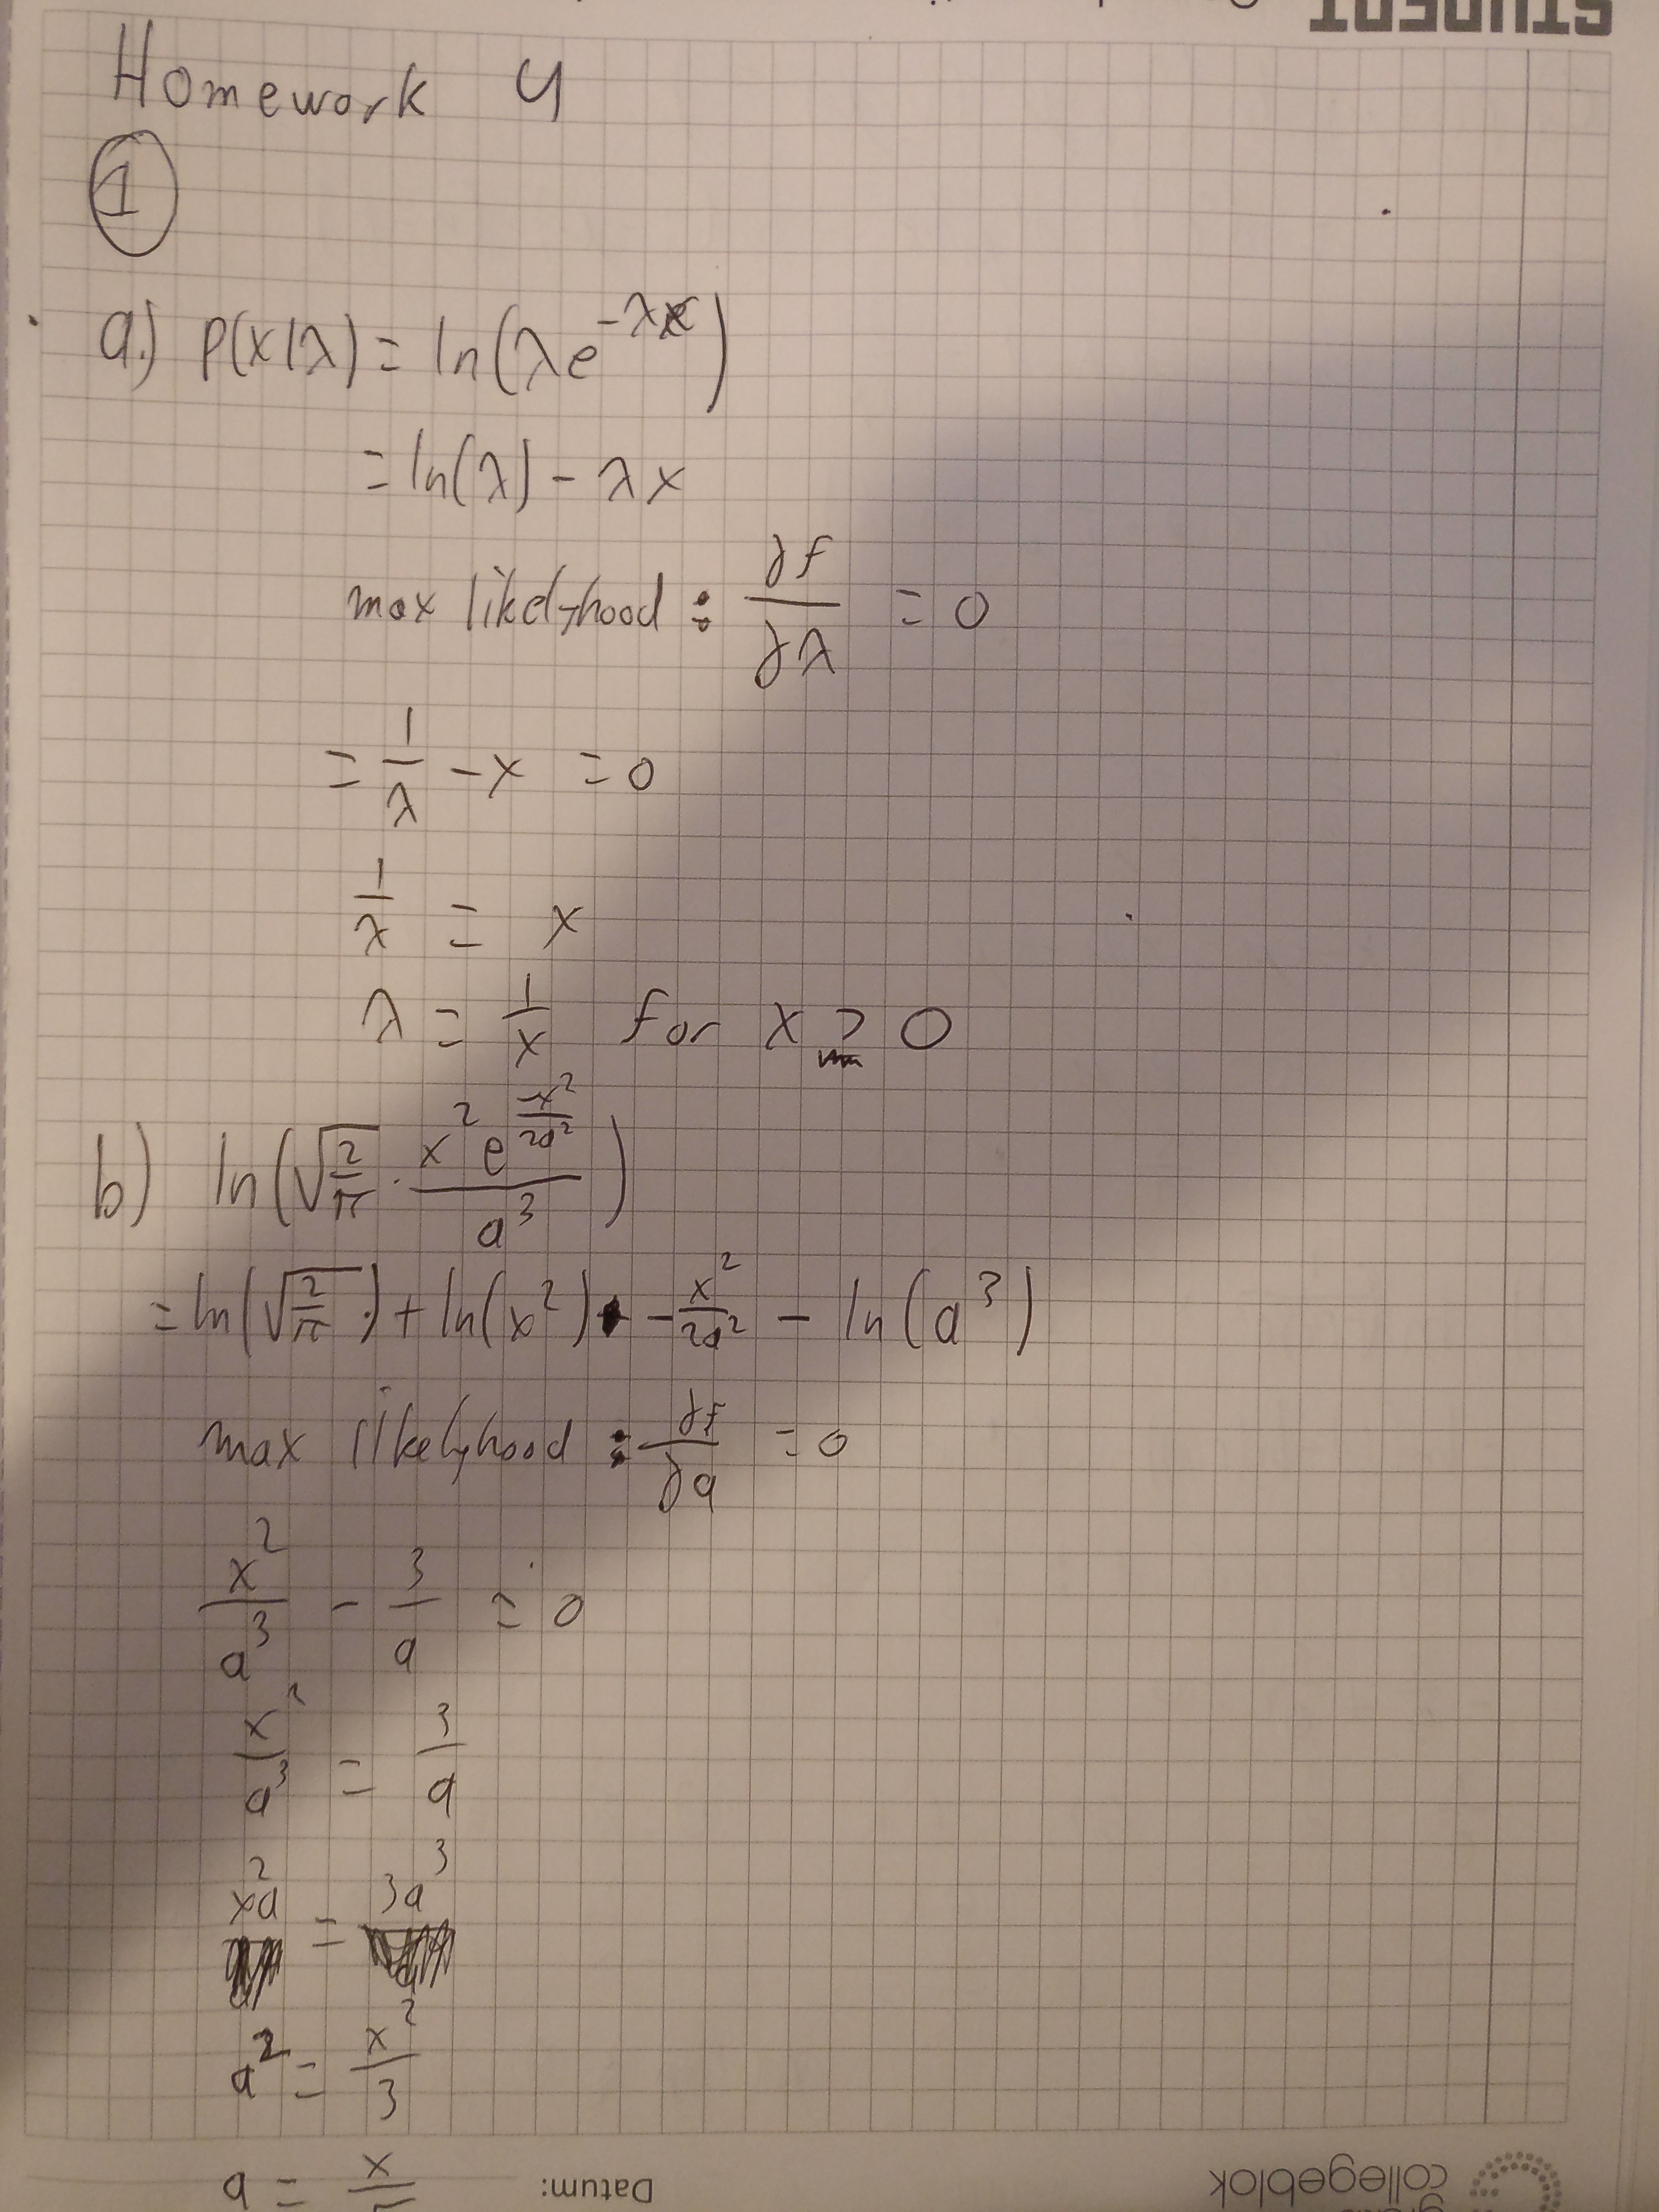 STUDENT
Homework 4
1
a.) P(x|λ) = ln(λe^{-λx})
= ln(λ) - λx
max likelyhood : ∂f/∂λ = 0
= 1/λ - x = 0
1/λ = x
λ = 1/x for x > 0
b) ln(√(2/π) · x² e^{-x²/2a²} / a³)
= ln(√(2/π)) + ln(x²) - x²/2a² - ln(a³)
max likelyhood : ∂f/∂a = 0
x²/a³ - 3/a = 0
x²/a³ = 3/a
x²a = 3a³
a² = x²/3
a = x/√
Datum:
collegeblok